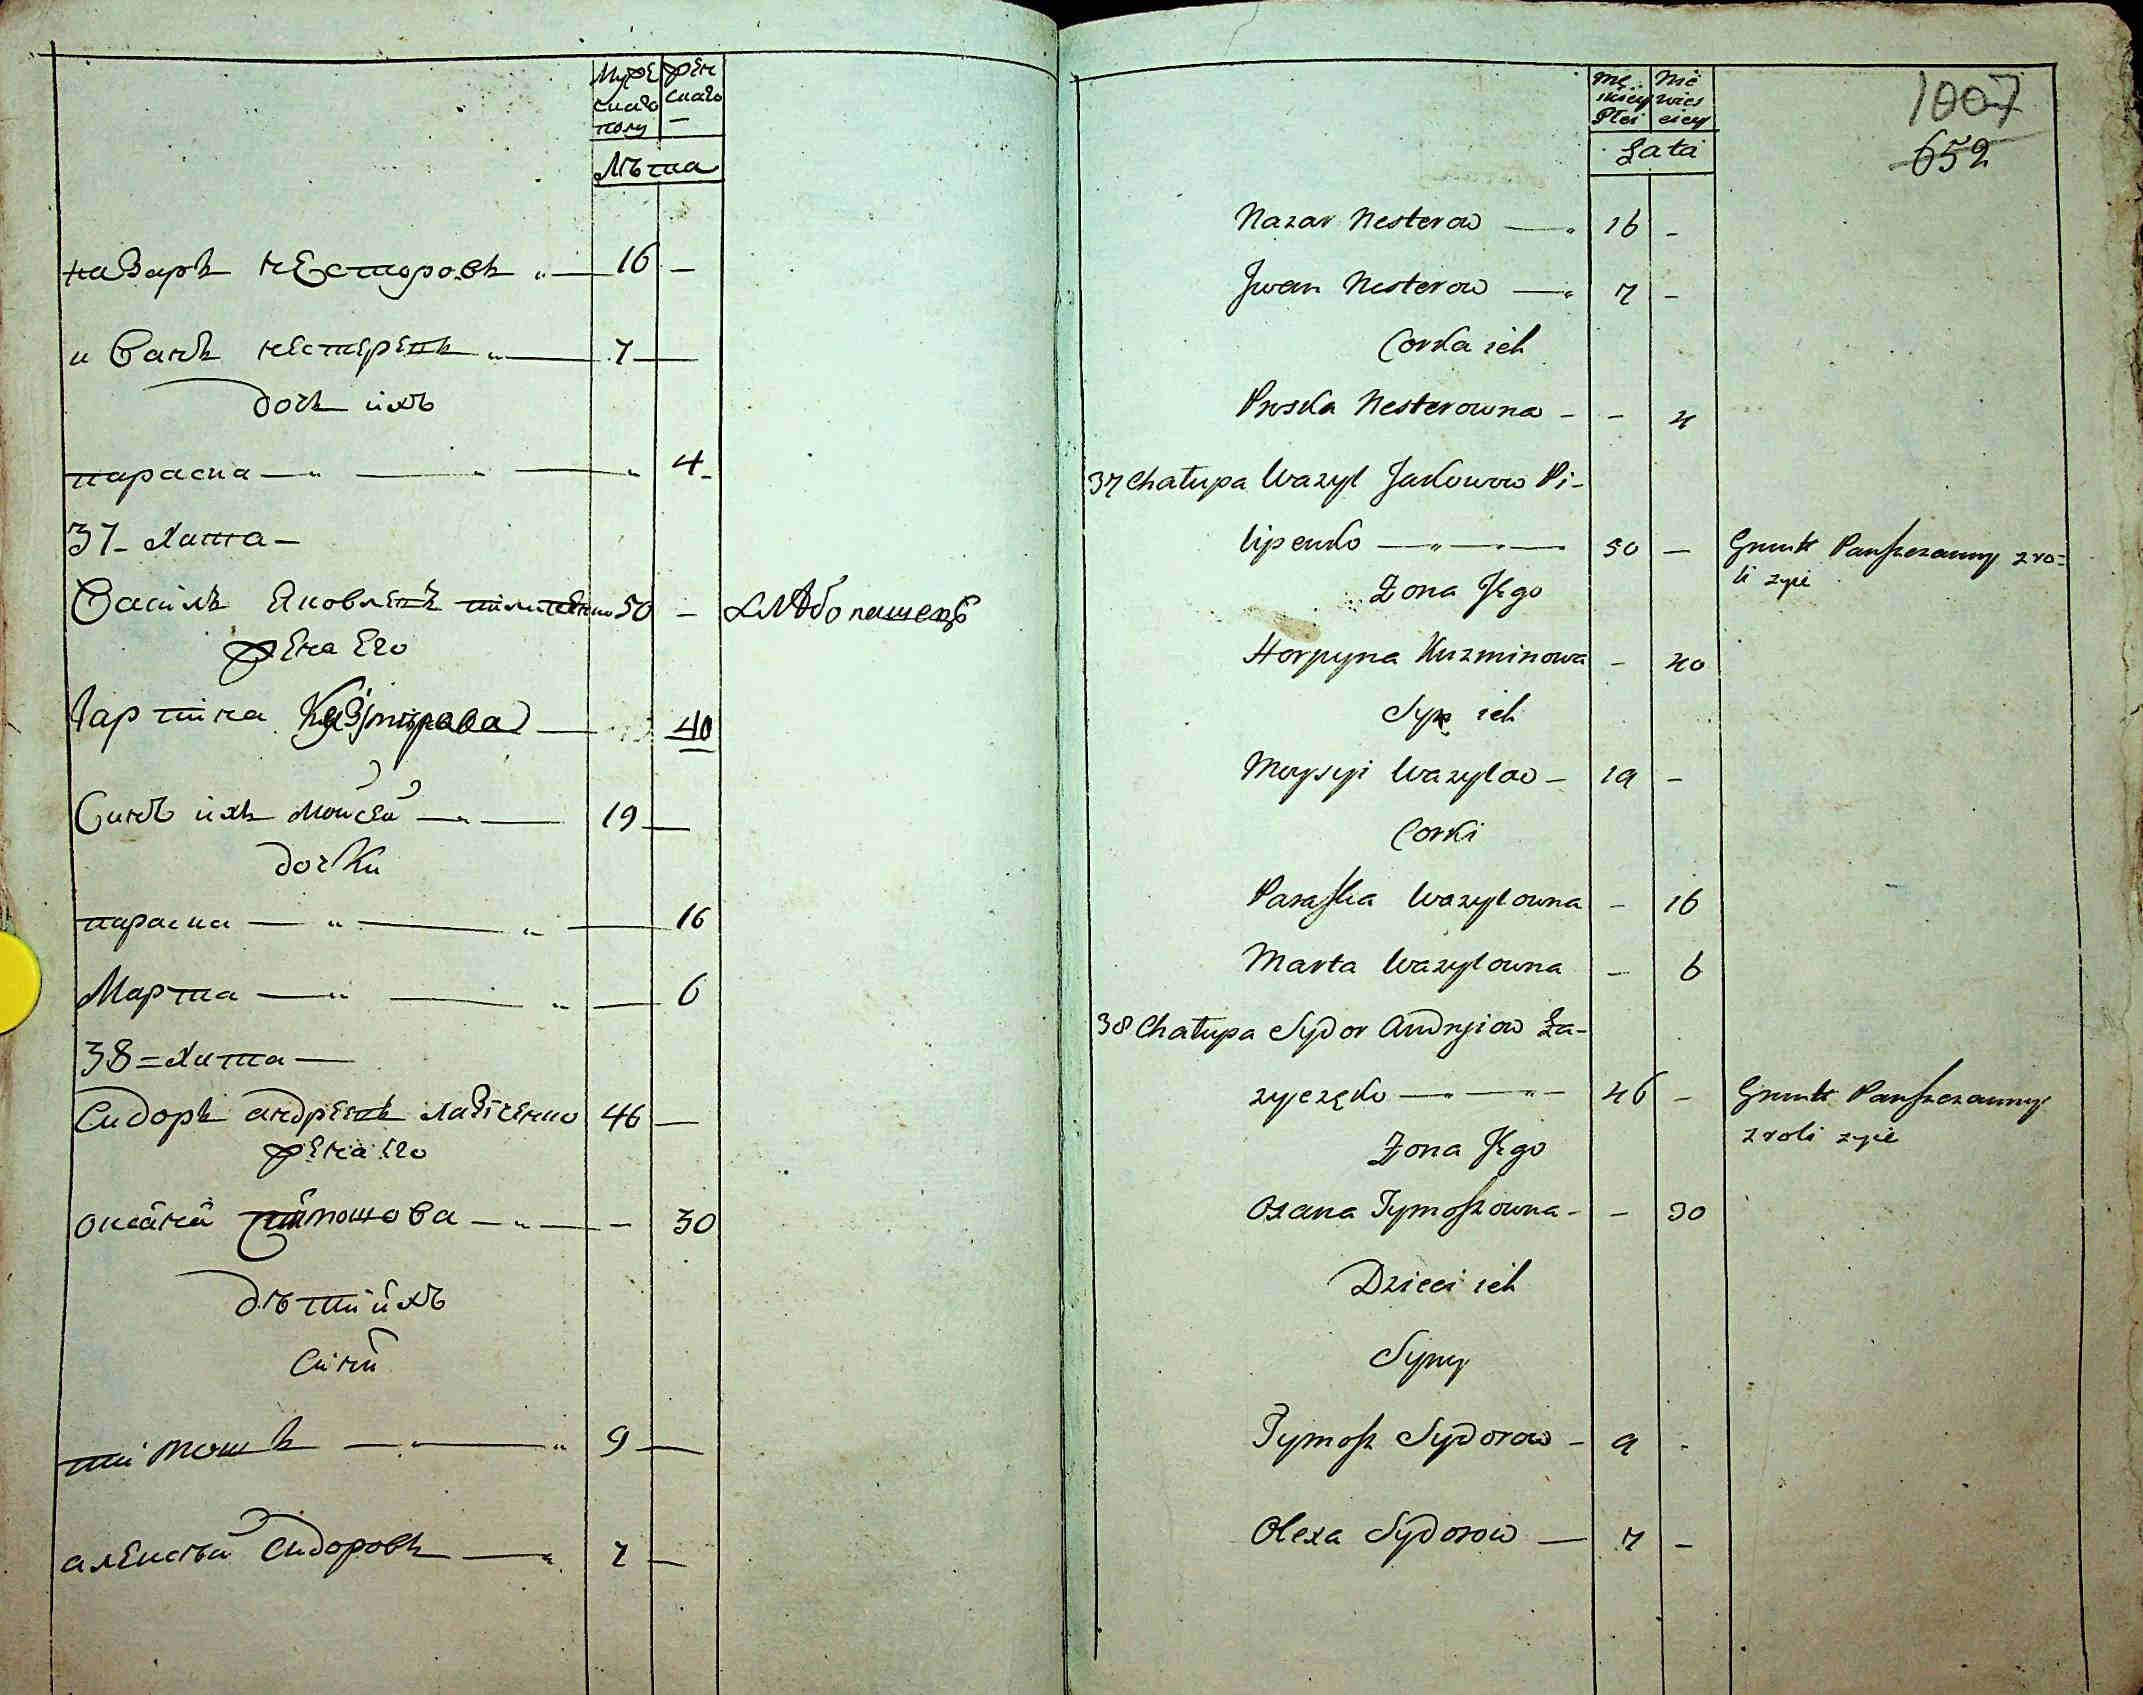 Муже женскаго
скаго —
полу
Лѣта
назаръ нЕсторовъ 16 —
иванъ нестерепъ 7 —
дочъ ихъ
параска 4 -
37 - хатта -
Василъ Яковлевъ пилипенко 50 - хлѣбопашецъ
жена Его
Гарпіна Кузмирава 40
Синъ ихъ Мойсей 19 —
дочки
параска 16
Марта 6
38 = хатта —
Сидоръ андреевъ лазиченко 46 —
жена Его
оксана тимошова - 30
дѣти ихъ
Сини
тимошъ 9 —
алексѣй Сидоровъ 7 —
Mę Nie
skiey wies
Płci ciey
Lata
1007
652
Nazar Nesterow — 16 -
Jwan Nesterow — 7 -
Corka ich
Proska Nesterowna - - 4
37 Chałupa Wazyl Jakowow Pi-
lipenko — 50 — Grunt Panszczanny z ro-
li zyie
Zona Jego
Horpyna Kuzminowa - 40
Syn ich
Moysyi Wazylow - 19 -
Corki
Paraska Wazylowna - 16
Marta Wazylowna - 6
38 Chałupa Sydor Andryiow Ła-
zyczęko — 46 - Grunt Panszczanny
z roli zyie
Zona Jego
Oxana Tymoszowna - - 30
Dzieci ich
Syny
Tymosz Sydorow - 9 -
Olexa Sydorow — 7 -